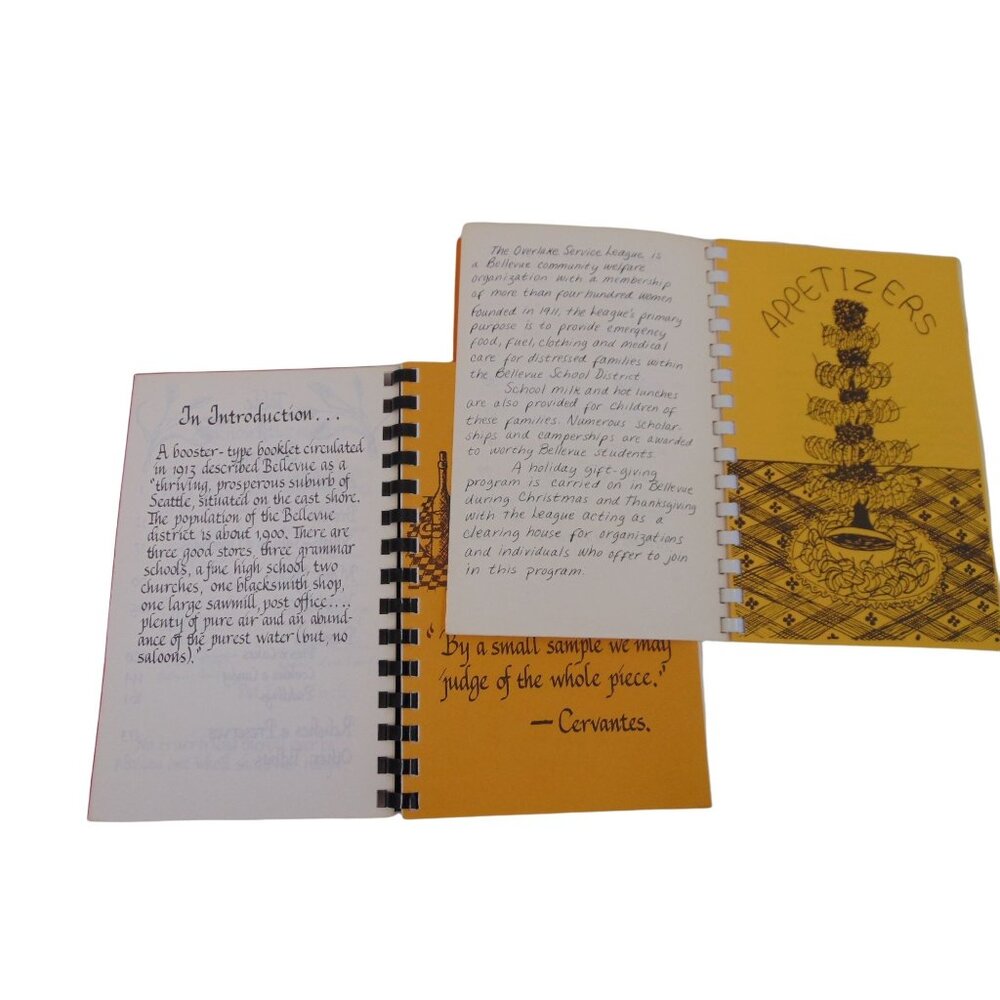 In Introduction...
A booster-type booklet circulated
in 1913 described Bellevue as a
"thriving, prosperous suburb of
Seattle, situated on the east shore.
The population of the Bellevue
district is about 1,900. There are
three good stores, three grammar
schools, a fine high school, two
churches, one blacksmith shop,
one large sawmill, post office....
plenty of pure air and an abund-
ance of the purest water (but, no
saloons)."
"By a small sample we may
judge of the whole piece."
— Cervantes.
The Overlake Service League is
a Bellevue community welfare
organization with a membership
of more than four hundred women.
Founded in 1911, the League's primary
purpose is to provide emergency
food, fuel, clothing and medical
care for distressed families within
the Bellevue School District.
School milk and hot lunches
are also provided for children of
these families. Numerous scholar-
ships and camperships are awarded
to worthy Bellevue students.
A holiday gift-giving
program is carried on in Bellevue
during Christmas and Thanksgiving
with the League acting as a
clearing house for organizations
and individuals who offer to join
in this program.
APPETIZERS